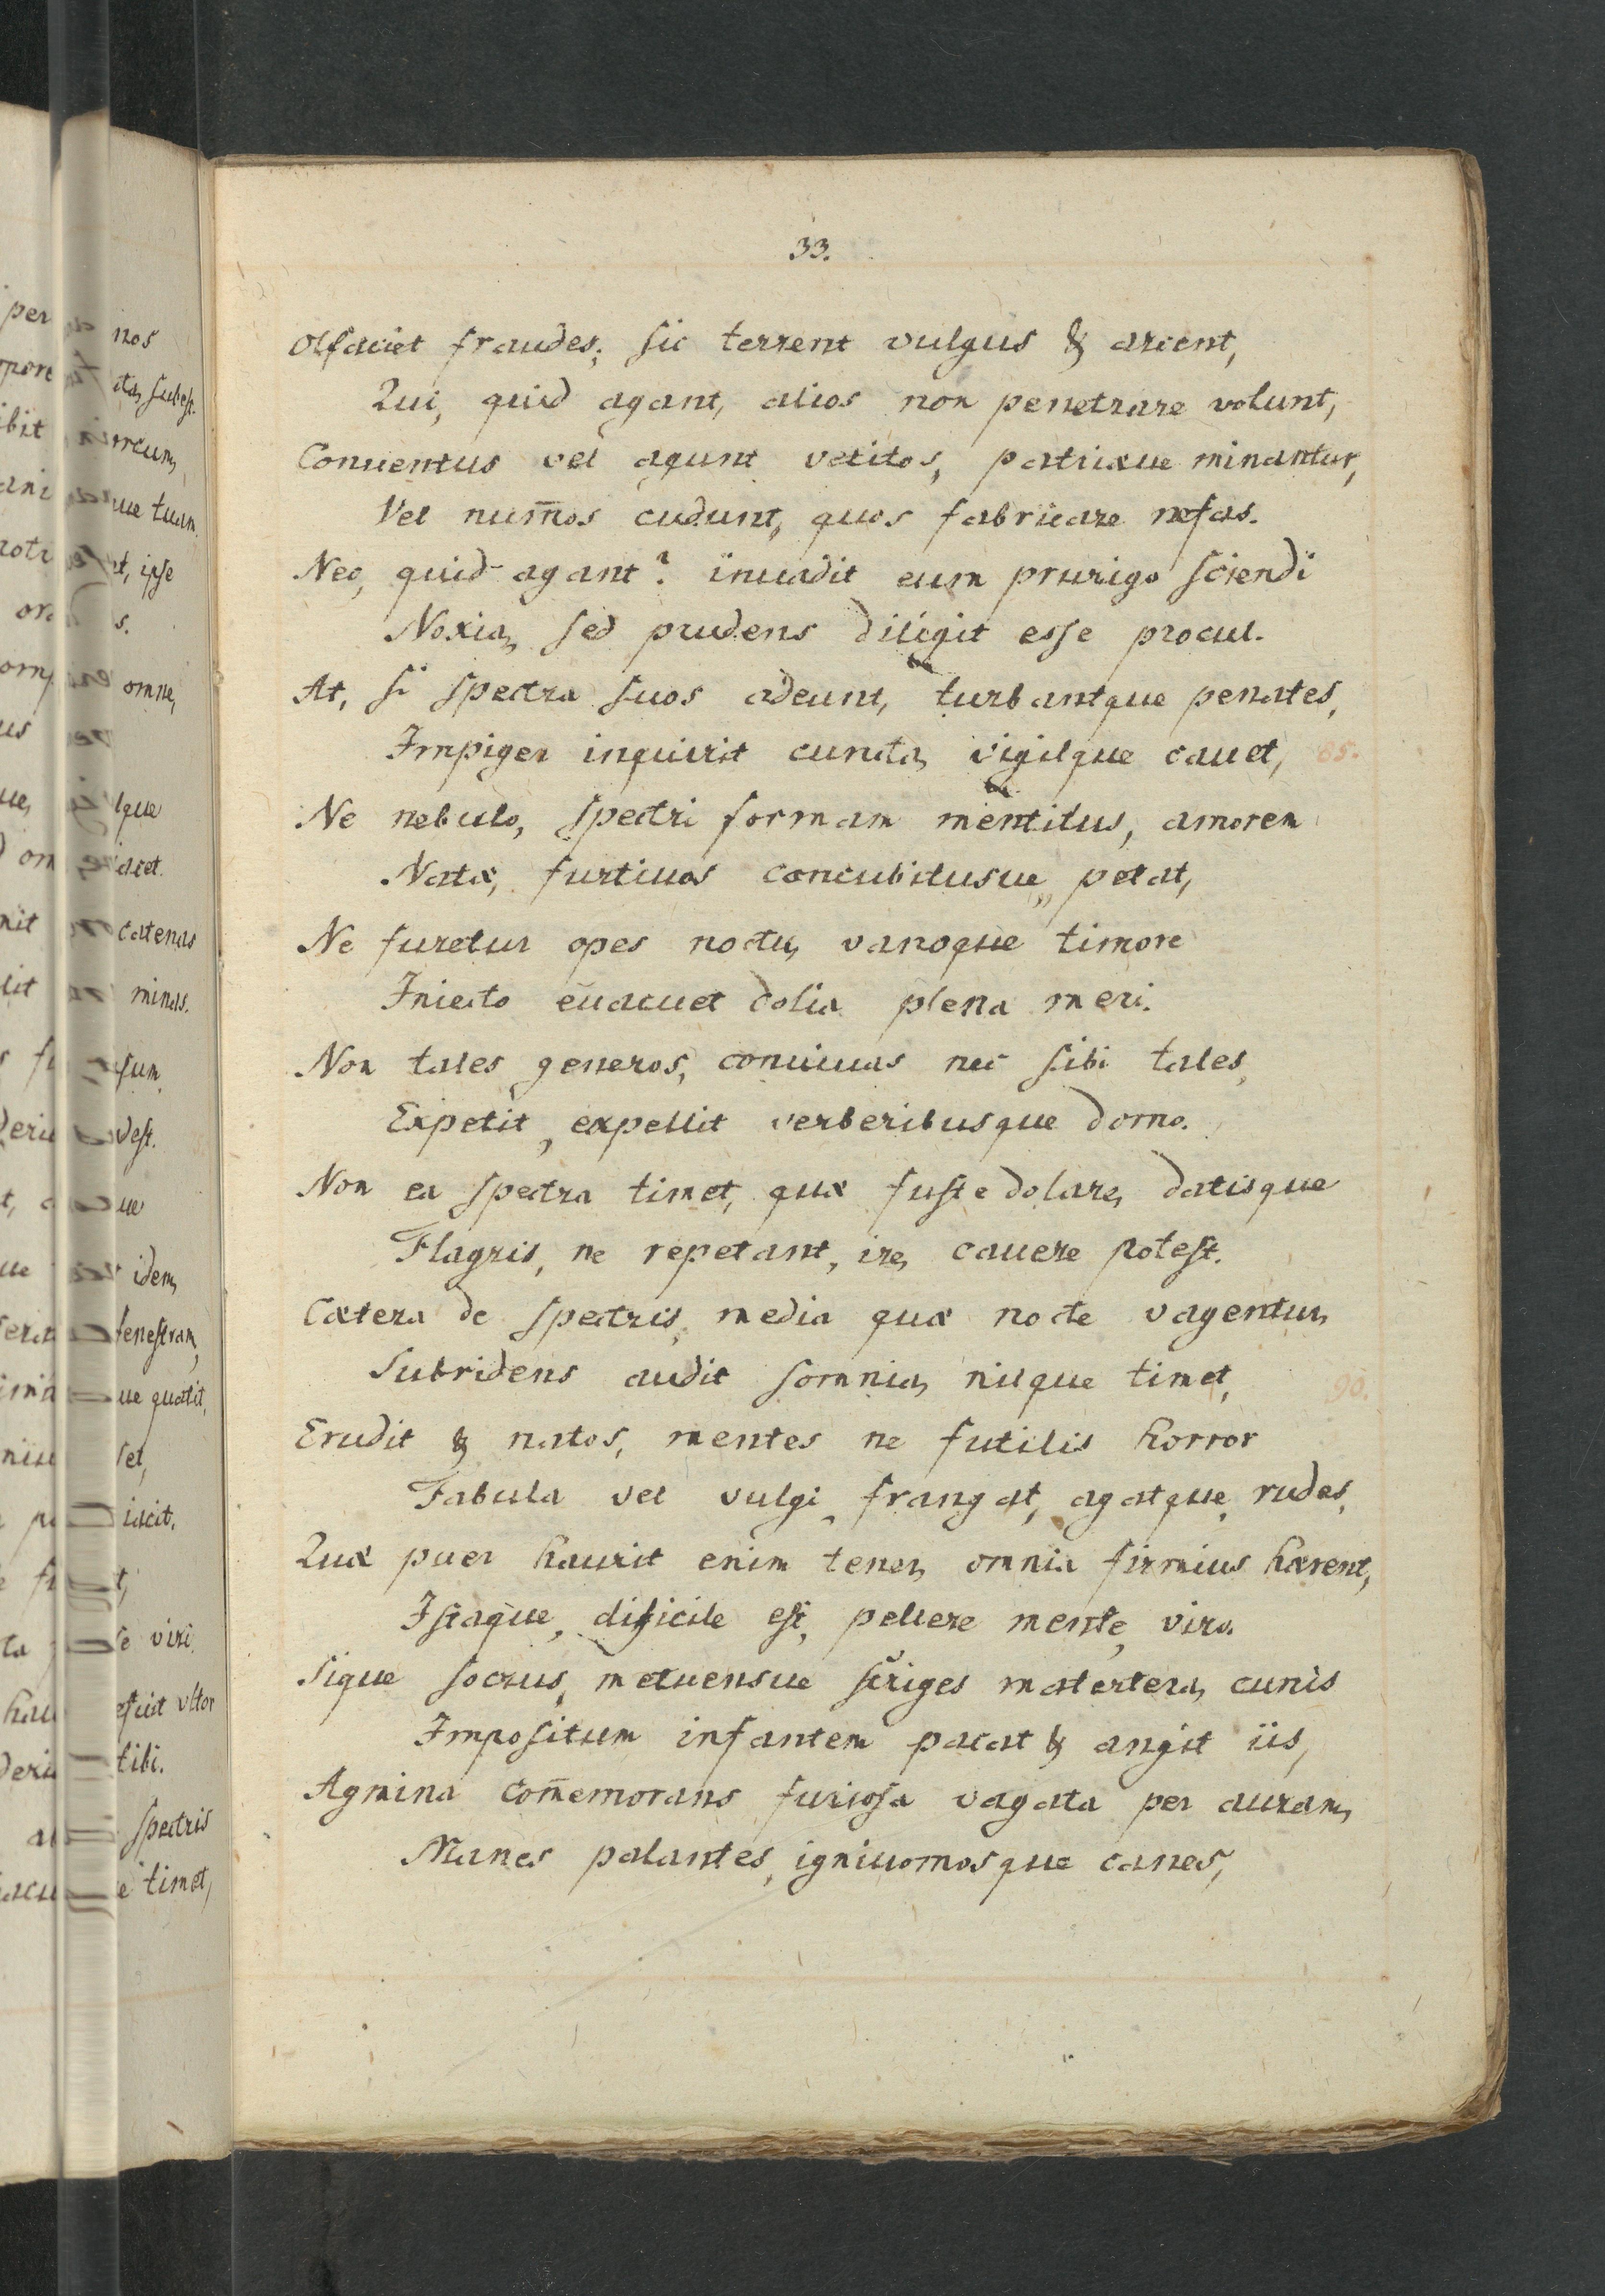 33.
Olfaciet fraudes; sic terrent vulgus & arcent,
Qui, quid agant, alios non penetrare volunt,
Conuentus vel agunt vetitos, patriæue minantur,
Vel num̄os cudunt, quos fabricare nefas.
Nec, quid agant? inuadit eum prurigo sciendi
Noxia, sed prudens diligit esse procul.
At, si spectra suos adeunt, turbantque penates,
Impiger inquirit cuncta, vigilque cauet, 85.
Ne nebulo, spectri formam mentitus, amorem
Natæ, furtiuos concubitusue, petat,
Ne furetur opes noctu, vanoque timore
Iniecto euacuet dolia plena meri.
Non tales generos, conuiuas nec sibi tales,
Expetit, expellit verberibusque domo.
Non ea spectra timet, quæ fuste dolare, datisque
Flagris, ne repetant, ire, cauere potest.
Cætera de spectris, media quæ nocte vagentur,
Subridens audit somnia, nilque timet, 90.
Erudit & natos, mentes ne futilis horror
Fabula vel vulgi frangat, agatque, rudes,
Quæ puer haurit enim tener, omnia firmius hærent,
Istaque, dificile est, pellere mente, viro.
Sique socrus, metuensue striges matertera, cunis
Impositum infantem pacat & angit iis,
Agmina com̄emorans furiosa vagata per auram,
Manes palantes, igniuomosque canes,
nos
subest.
que tuam
ipse
omne,
catenas
minas.
idem,
fenestram,
ue quatit,
viri.
tibi.
spectris
timet,